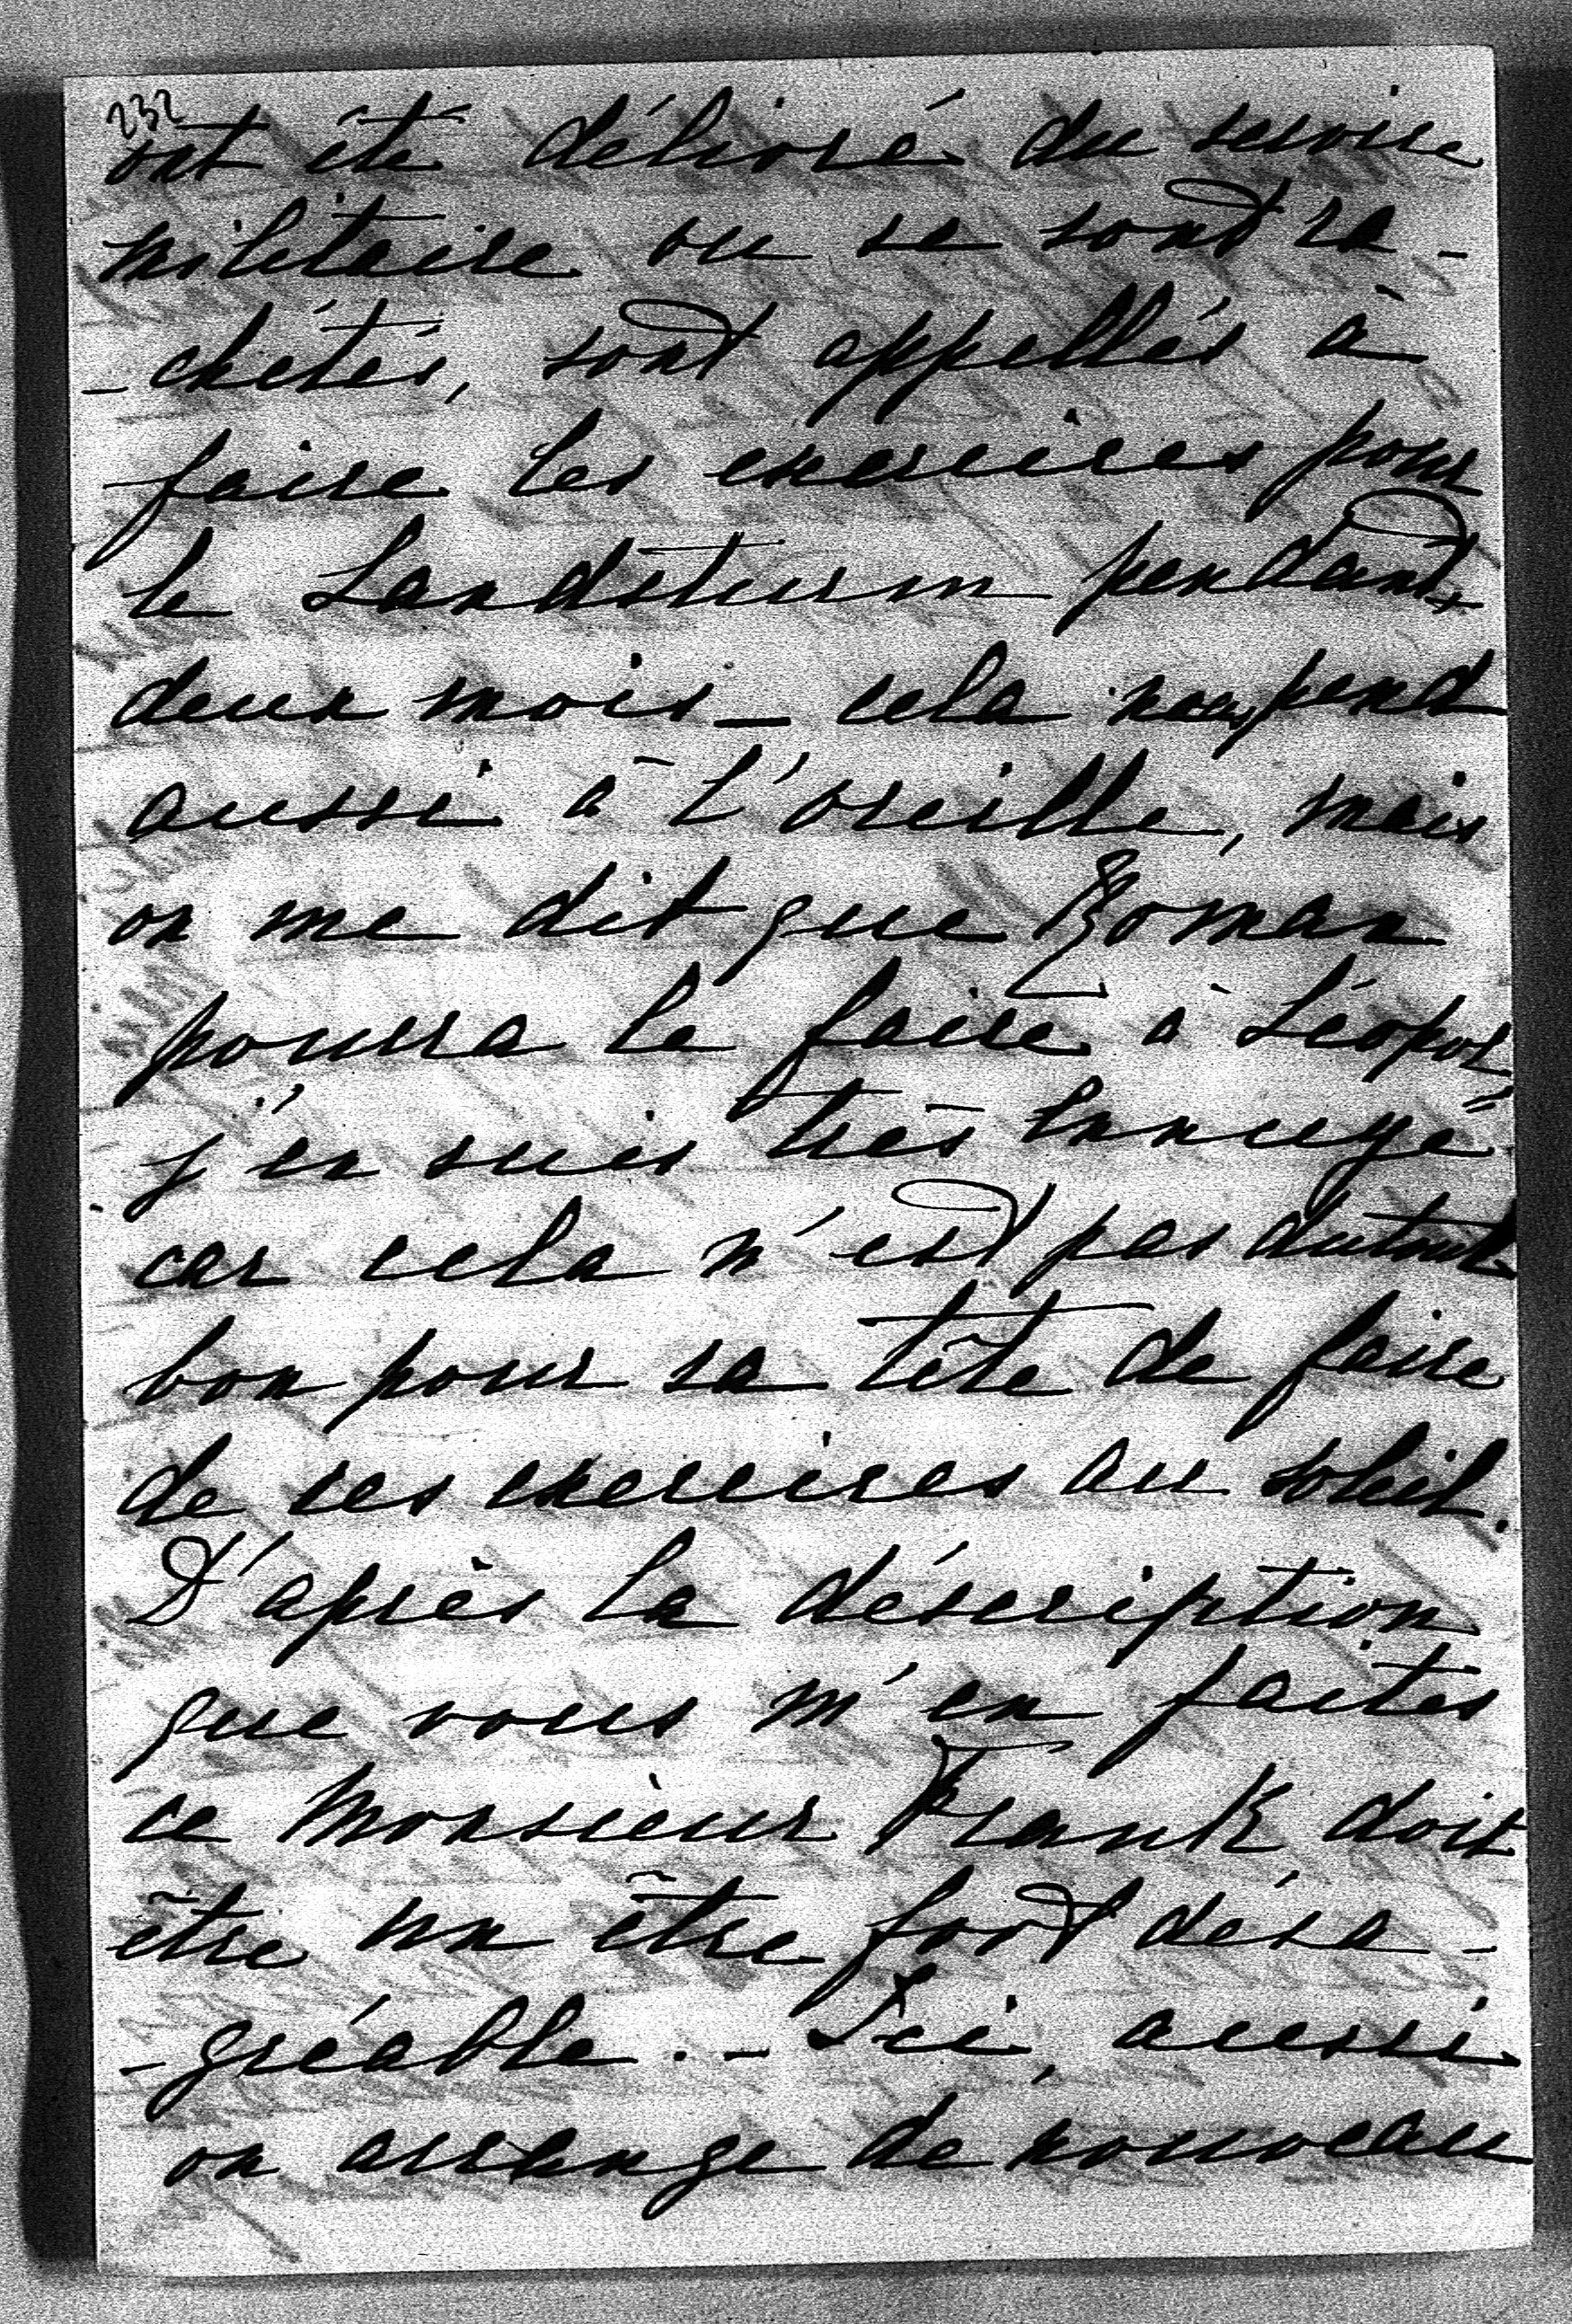 232
ont été délivré du servire
militaire ou se sont ra-
-chétés, sont appellés à
faire les exercices pour
le Landsturm pendant
deux mois _ cela nous pend
aussi à l'oreille, mais
on me dit que Roman
pourra le faire à Léopol
j'en suis très ennuyé
car cela n'est pas dutout
bon pour sa tête de faire
de ces exercices au soleil.
D'après la déscription
que vous m'en faites
ce Monsieur Frank doit
être un être fort désa-
-gréable._ Ici, aussi
on arrange de nouveau